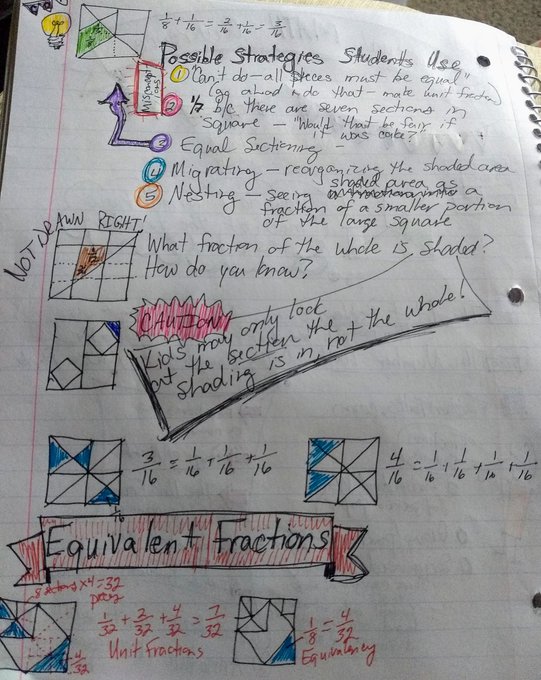 1/8 + 1/16 = 2/16 + 1/16 = 3/16
Possible Strategies Students Use
Misconceptions
1 "Can't do - all pieces must be equal"
(go ahead & do that - make unit fraction)
2 1/7 b/c there are seven sections in
square - "Would that be fair if
it was cake?"
3 Equal Sectioning -
4 Migrating - reorganizing the shaded area
5 Nesting - seeing shaded area as a
fraction of a smaller portion
of the large square
NOT DRAWN RIGHT!
What fraction of the whole is shaded?
How do you know?
CAUTION!
Kids may only look
at the section the
shading is in, not the whole!
3/16 = 1/16 + 1/16 + 1/16
4/16 = 1/16 + 1/16 + 1/16 + 1/16
1/16
Equivalent Fractions
8 sections x 4 = 32
pieces
1/32 + 2/32 + 4/32 = 7/32
Unit Fractions
4/32
1/8 = 4/32
Equivalency